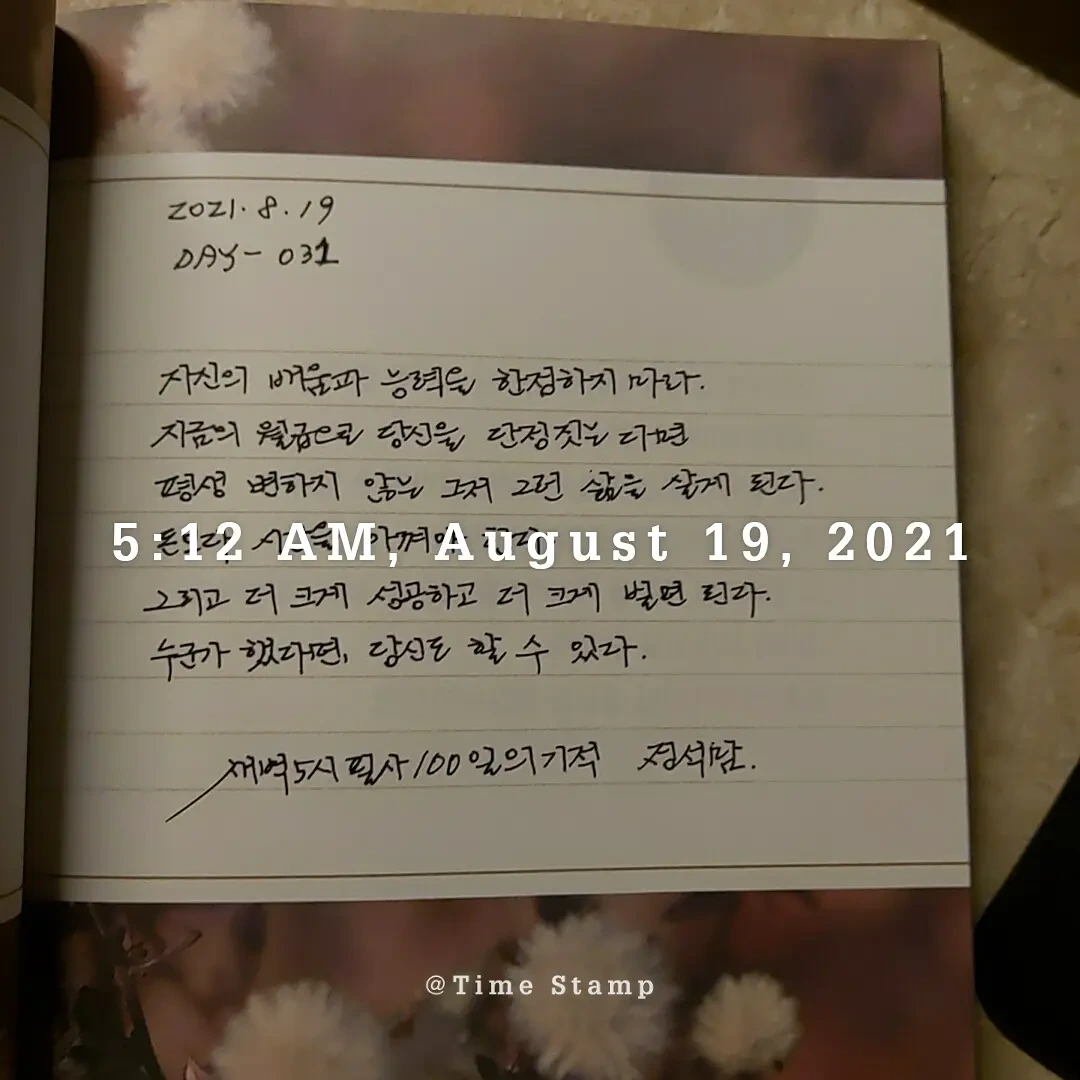 2021. 8. 19
DAY- 031
자신의 배움과 능력을 한정하지 마라.
지금의 월급으로 당신을 단정짓는 다면
평생 변하지 않는 그저 그런 삶을 살게 된다.
5:12 AM, August 19, 2021
그리고 더 크게 성공하고 더 크게 벌면 된다.
누군가 했다면, 당신도 할 수 있다.
새벽5시 필사 100일의 기적
@Time Stamp